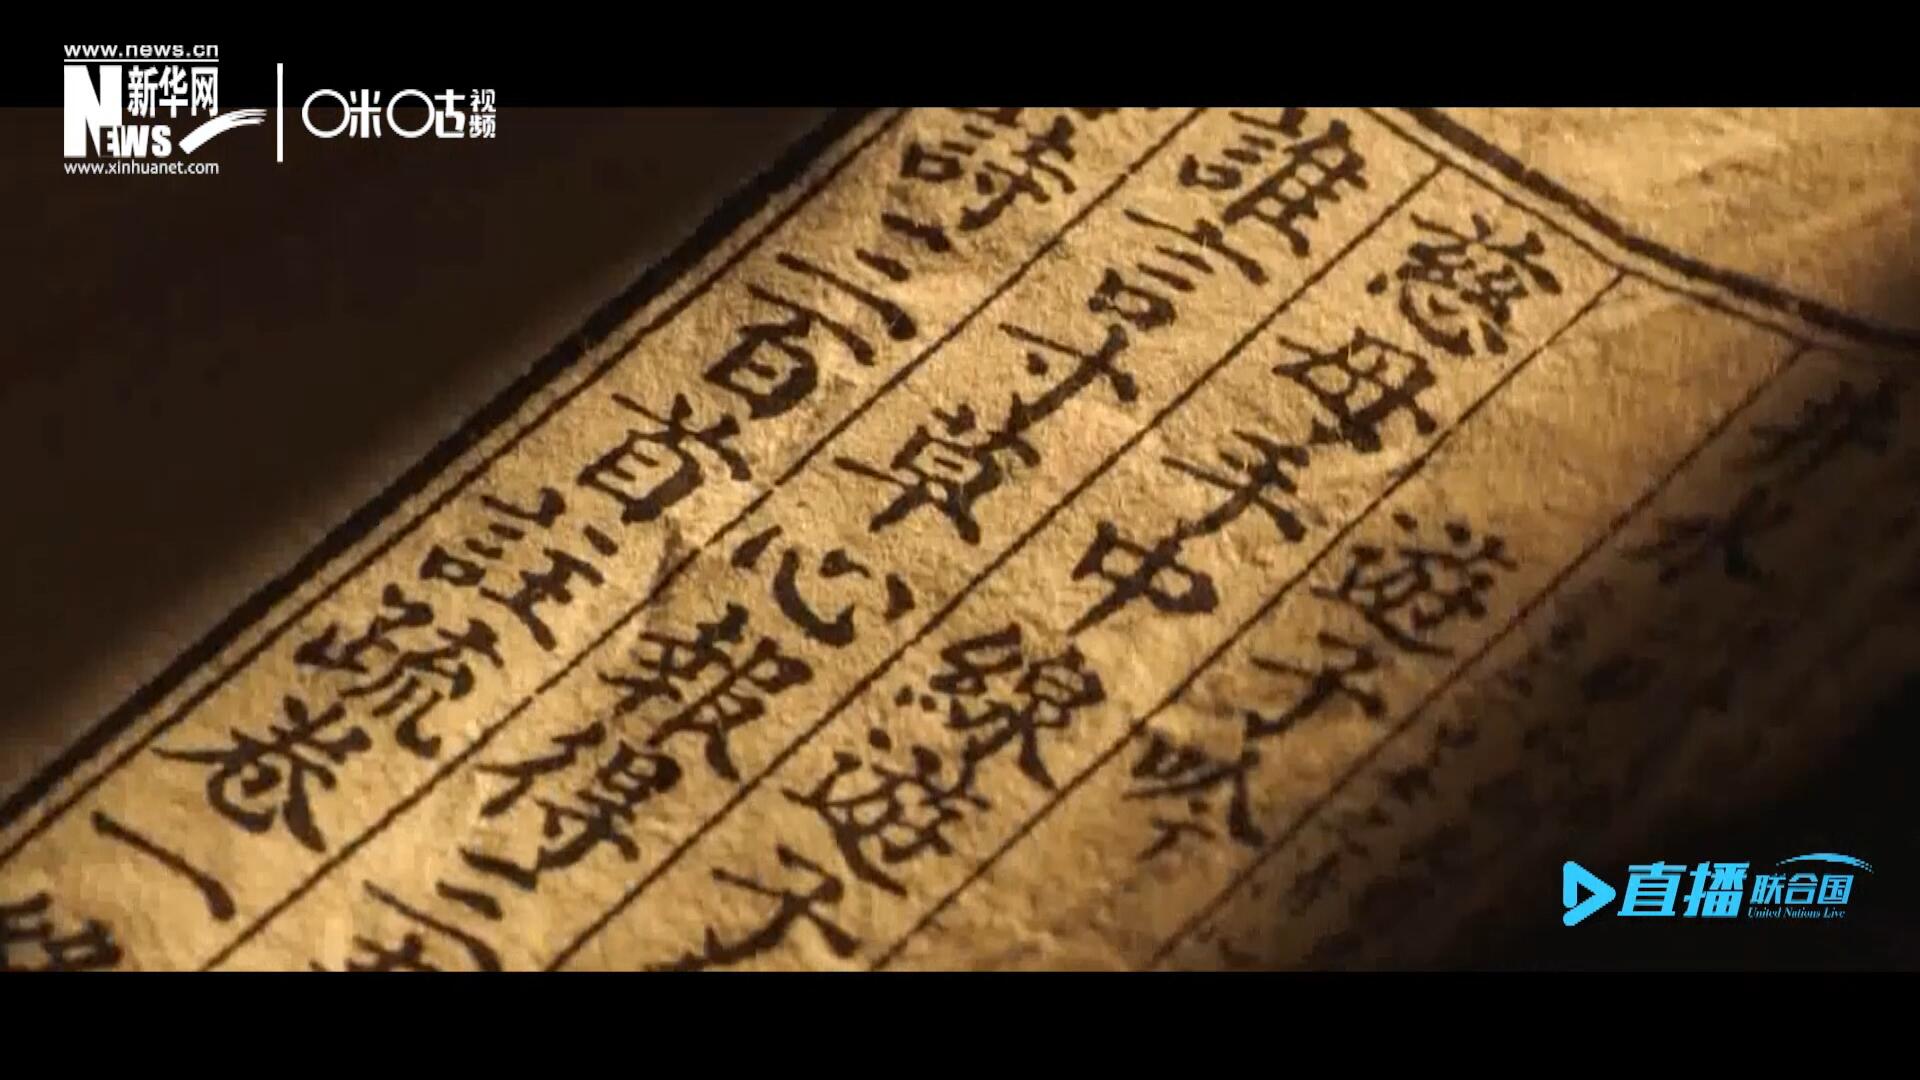 www.news.cn
新华网
NEWS
www.xinhuanet.com
咪咕视频
遊子吟
慈母手中線遊子
誰言寸草心報得三
詩三百首註疏卷二
直播联合国
United Nations Live